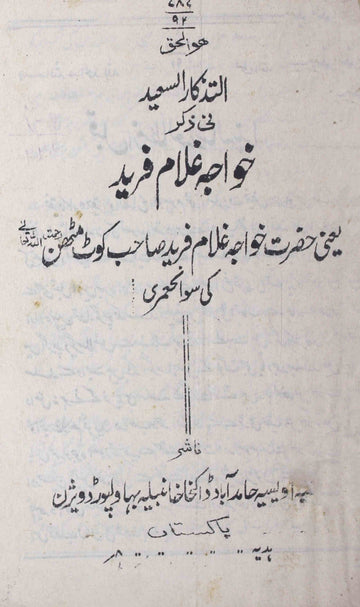 ۷۸۶
۹۲
ھوالحق
التذکارالسعید
فی ذکر
خواجہ غلام فرید
یعنی حضرت خواجہ غلام فرید صاحب کوٹ مٹھن
کی سوانحعمری
ناشر
اویسیہ حامد آباد ڈاکخانہ خانبیلہ بہاولپور ڈویژن
پاکستان
ہدیہ